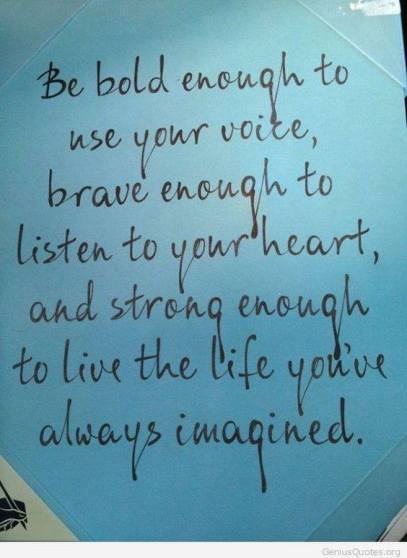 Be bold enough to
use your voice,
brave enough to
listen to your heart,
and strong enough
to live the life you've
always imagined.
GeniusQuotes.org